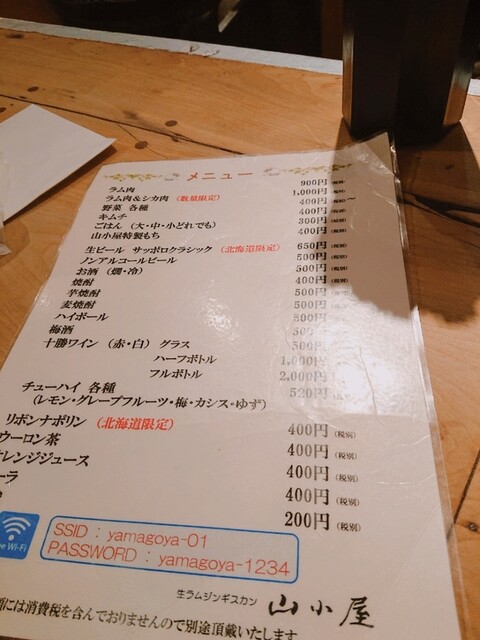 メニュー
ラム肉 900円 (税別)
ラム肉&シカ肉 (数量限定) 1,000円 (税別)
野菜 各種 400円 (税別)~
キムチ 300円 (税別)
ごはん (大・中・小どれでも) 400円 (税別)
山小屋特製もち 400円 (税別)
生ビール サッポロクラシック (北海道限定) 650円 (税別)
ノンアルコールビール 500円 (税別)
お酒 (燗・冷) 500円 (税別)
焼酎 400円 (税別)
芋焼酎 500円
麦焼酎 500円
ハイボール 500円
梅酒 500円
十勝ワイン (赤・白) グラス 500円
ハーフボトル 1,000円
フルボトル 2,000円
チューハイ 各種 520円
(レモン・グレープフルーツ・梅・カシス・ゆず)
リボンナポリン (北海道限定) 400円 (税別)
ウーロン茶 400円 (税別)
レンジジュース 400円 (税別)
ーラ 400円 (税別)
200円 (税別)
Wi-Fi
SSID : yamagoya-01
PASSWORD : yamagoya-1234
生ラムジンギスカン 山小屋
には消費税を含んでおりませんので別途頂戴いたします